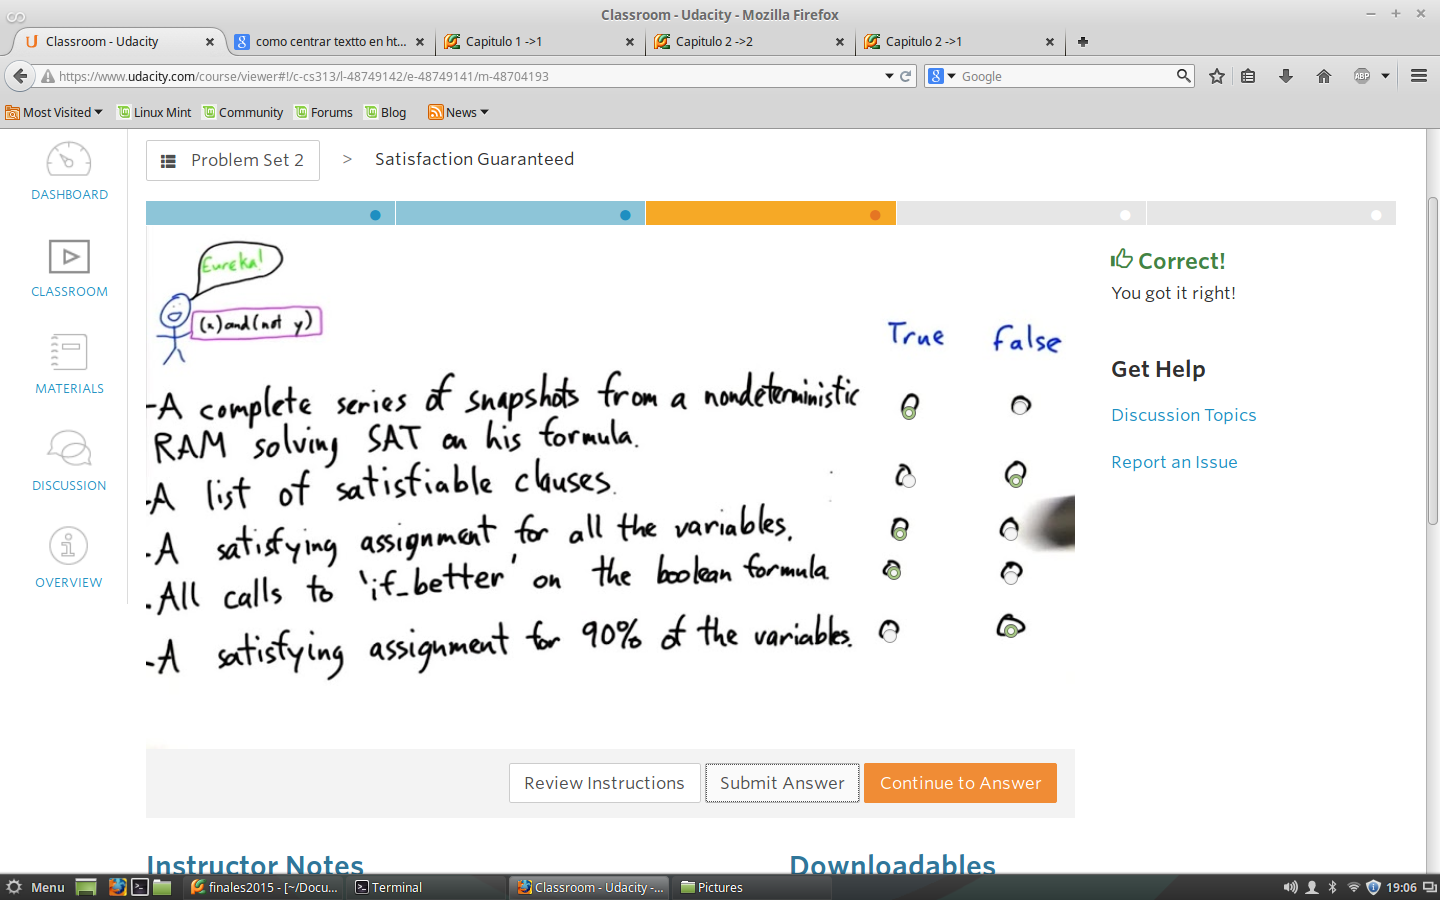 Classroom - Udacity - Mozilla Firefox
Classroom - Udacity
como centrar textto en ht...
Capitulo 1 ->1
Capitulo 2 ->2
Capitulo 2 ->1
https://www.udacity.com/course/viewer#!/c-cs313/l-48749142/e-48749141/m-48704193
Google
ABP
Most Visited
Linux Mint
Community
Forums
Blog
News
DASHBOARD
CLASSROOM
MATERIALS
DISCUSSION
OVERVIEW
Problem Set 2 > Satisfaction Guaranteed
Eureka!
(x)and(not y)
True False
-A complete series of snapshots from a nondeterministic
RAM solving SAT on his formula.
-A list of satisfiable clauses.
-A satisfying assignment for all the variables.
-All calls to 'if_better' on the boolean formula
-A satisfying assignment for 90% of the variables.
Correct!
You got it right!
Get Help
Discussion Topics
Report an Issue
Review Instructions
Submit Answer
Continue to Answer
Instructor Notes
Downloadables
Menu
finales2015 - [~/Docu...
Terminal
Classroom - Udacity -...
Pictures
19:06